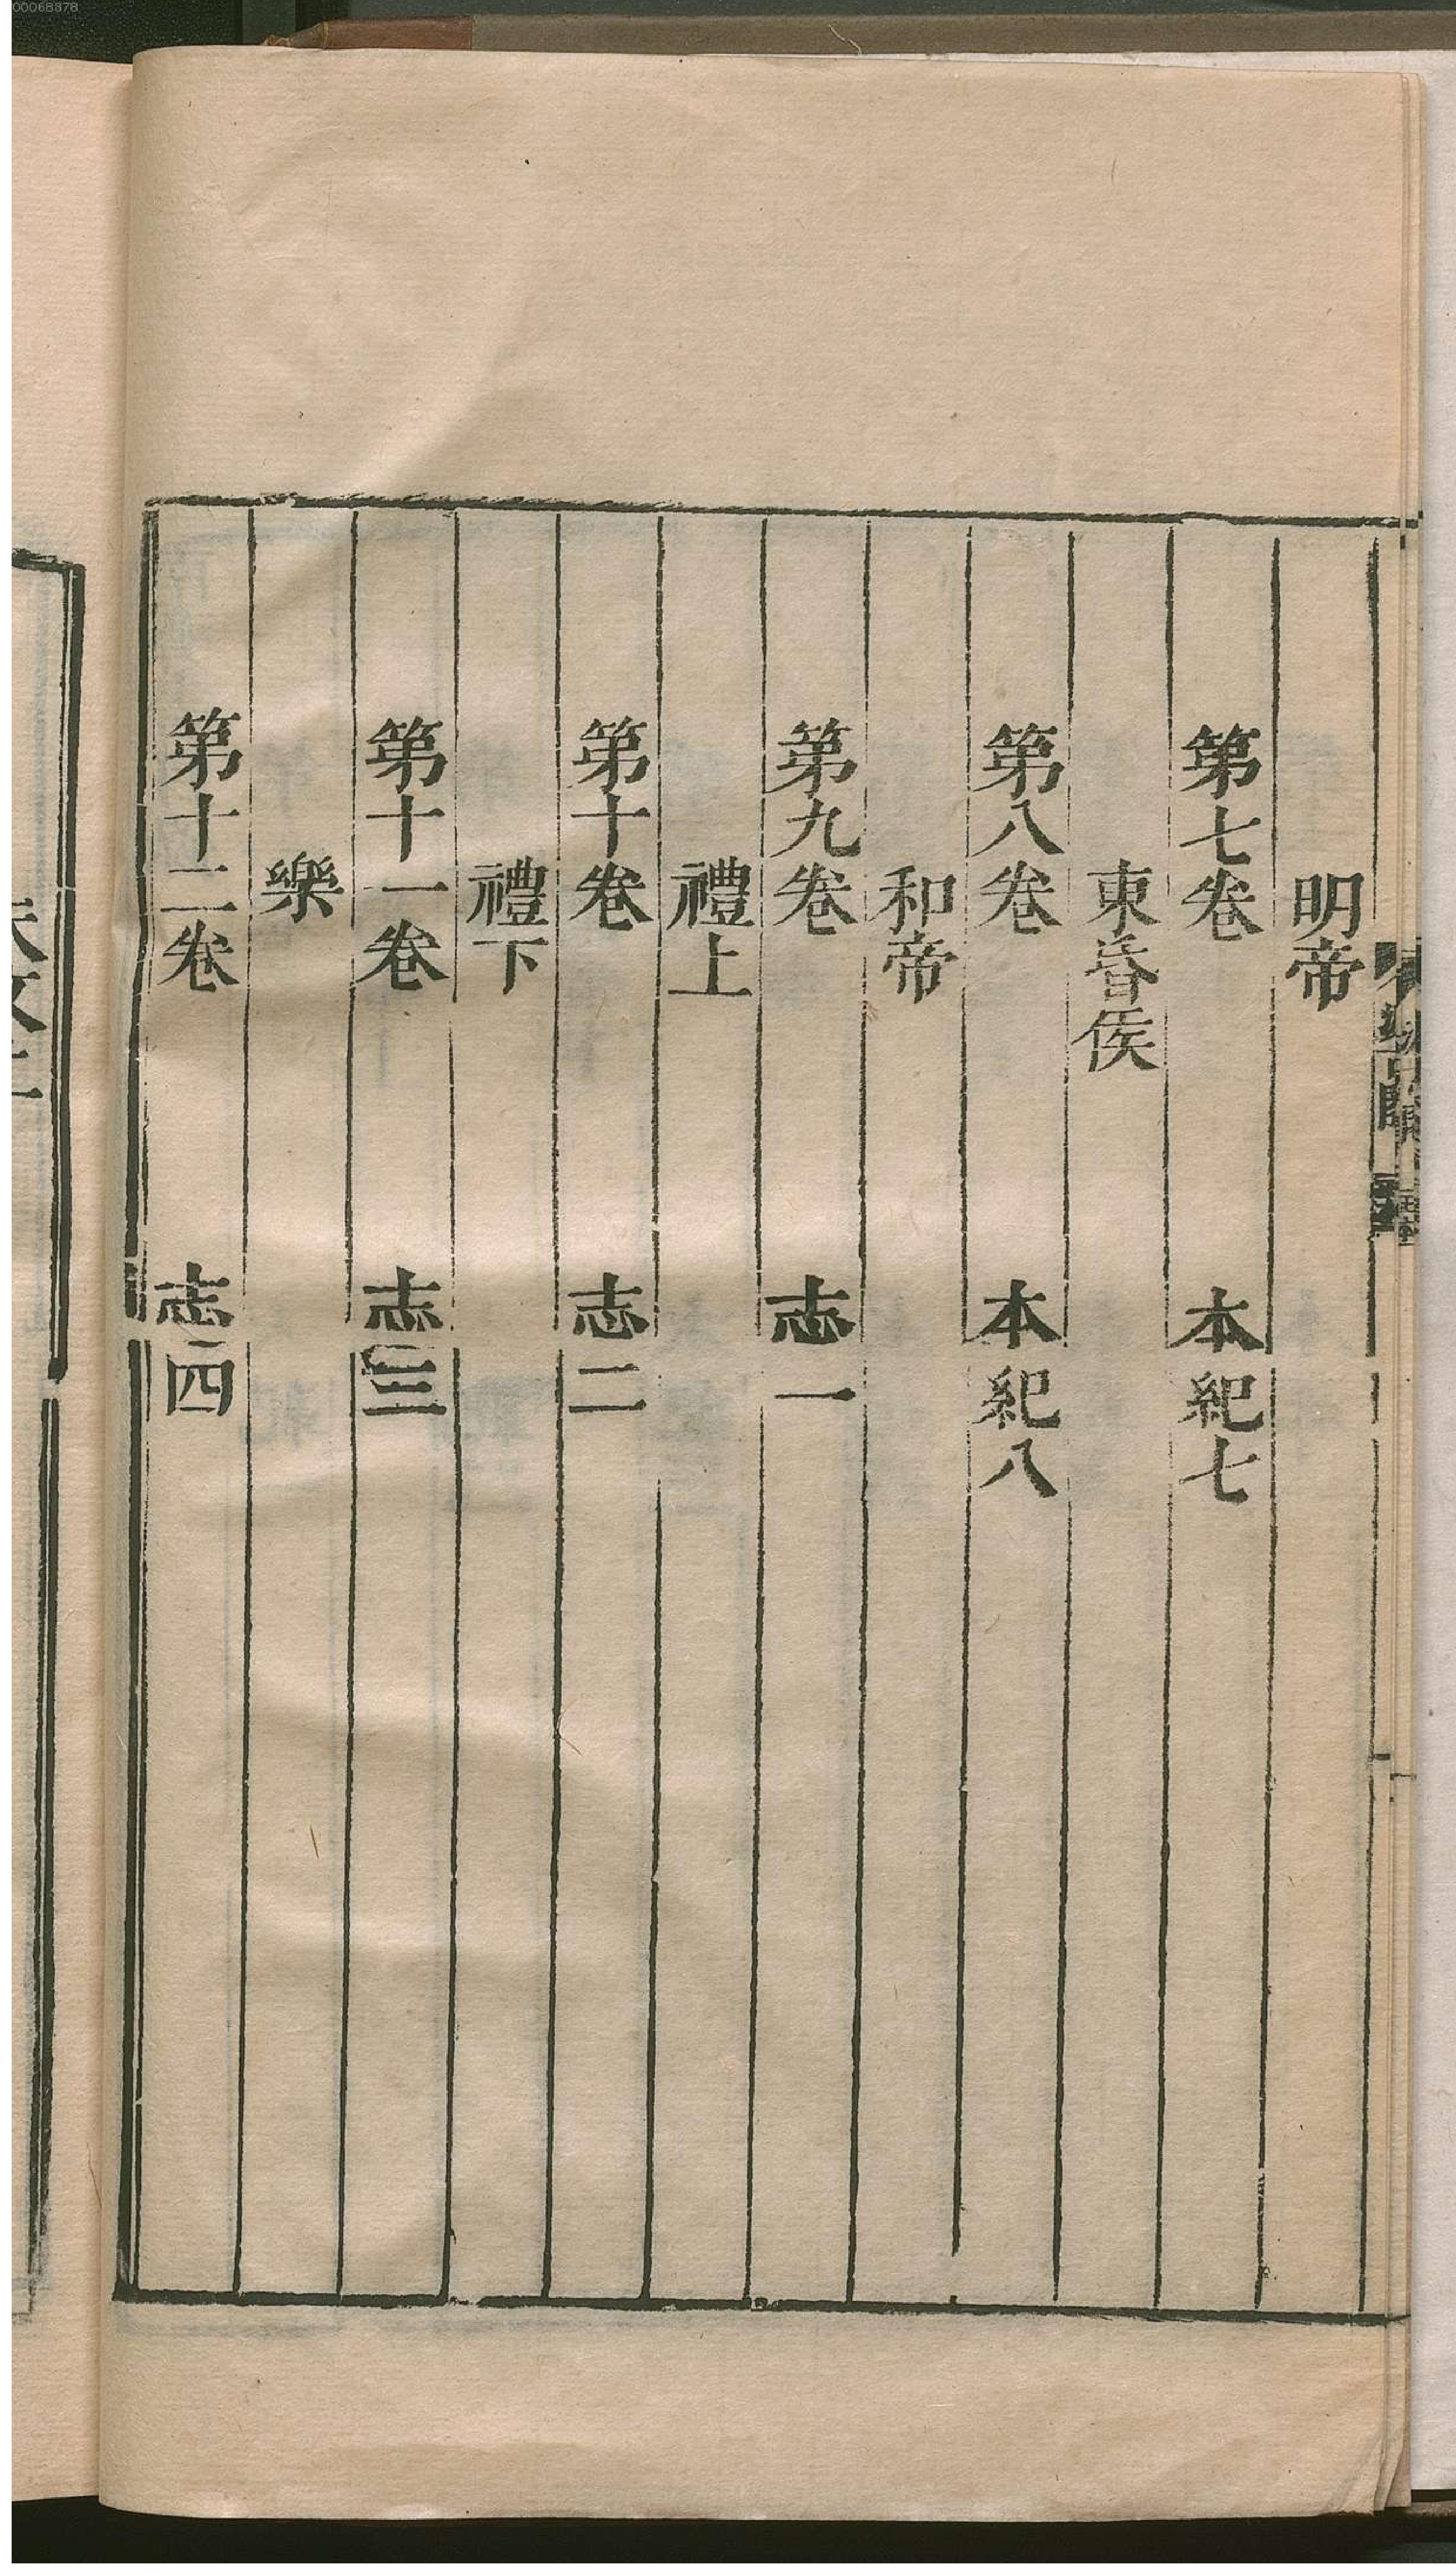 00068878
明帝
第七卷 本紀七
東昏侯
第八卷 本紀八
和帝
第九卷 志一
禮上
第十卷 志二
禮下
第十一卷 志三
樂
第十二卷 志四